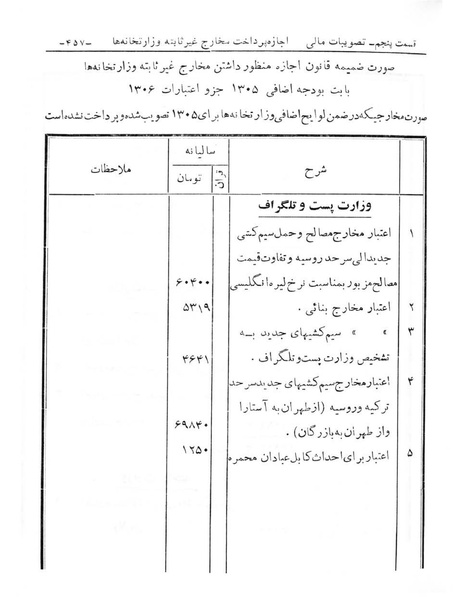 قسمت پنجم- تصویبات مالی   اجازه پرداخت مخارج غیر ثابته وزارتخانه‌ها   -۴۵۷-
صورت ضمیمه قانون اجازه منظور داشتن مخارج غیر ثابته وزارتخانه‌ها
بابت بودجه اضافی ۱۳۰۵ جزو اعتبارات ۱۳۰۶
صورت مخارجیکه در ضمن لوایح اضافی وزارتخانه‌ها برای ۱۳۰۵ تصویب شده و پرداخت نشده است
شرح   سالیانه   ملاحظات
قران   تومان
وزارت پست و تلگراف
۱   اعتبار مخارج مصالح و حمل سیم کشی
جدید الی سرحد روسیه و تفاوت قیمت
مصالح مزبور بمناسبت نرخ لیره انگلیسی   ۶۰۴۰۰
۲   اعتبار مخارج بنائی .   ۵۳۱۹
۳   »   »   سیم کشیهای جدید به
تشخیص وزارت پست و تلگراف .   ۴۶۴۱
۴   اعتبار مخارج سیم کشیهای جدید سرحد
ترکیه و روسیه (از طهران به آستارا
و از طهران به بازرگان) .   ۶۹۸۴۰
۵   اعتبار برای احداث کابل عبادان محمره   ۱۲۵۰